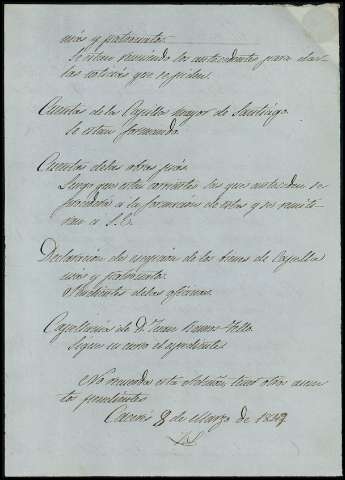 nias y patronato.
Se estan reuniendo los antecedentes para dar
las noticias que se piden.
Cuentas de la Capilla mayor de Santiago
Se estan formando.
Cuentas de las obras pias.
Luego que esten corrientes las que anteceden se
procederá a la formacion de estas y se remiti
ran a S. E.
Declaracion de esencion de los bienes de Capella
nias y patronato.
Pendientes de las oficinas.
Capellania de D. Juan Ramos
Sigue su curso el espediente.
No recuerda esta tener otros asun
tos pendientes
Caceres 8 de Marzo de